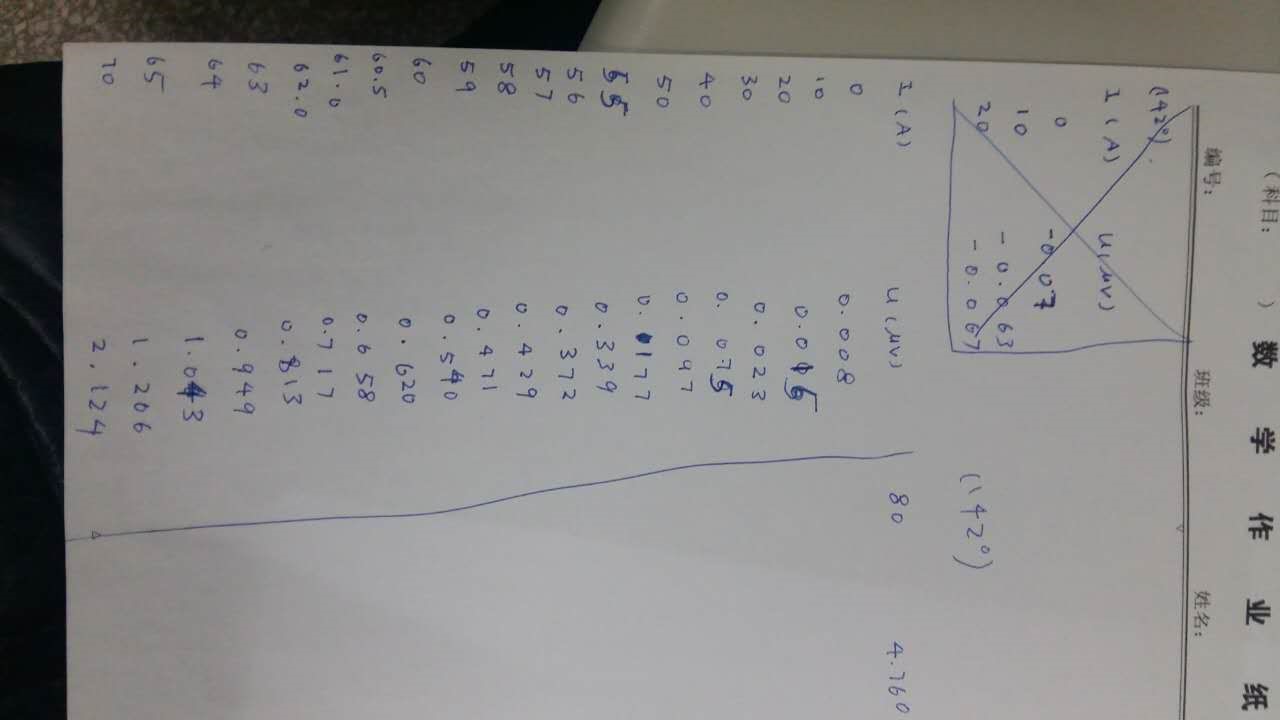 (科目: ) 数学作业纸
编号: 班级: 姓名:
(142°).
I(A) U(μV)
0 -0.07
10 -0.063
20 -0.067
(142°)
I(A) U(μV) 80 4.760
0 0.008
10 0.015
20 0.023
30 0.075
40 0.097
50 0.177
55 0.339
56 0.372
57 0.429
58 0.471
59 0.540
60 0.620
60.5 0.658
61.0 0.717
62.0 0.813
63 0.949
64 1.043
65 1.206
70 2.124